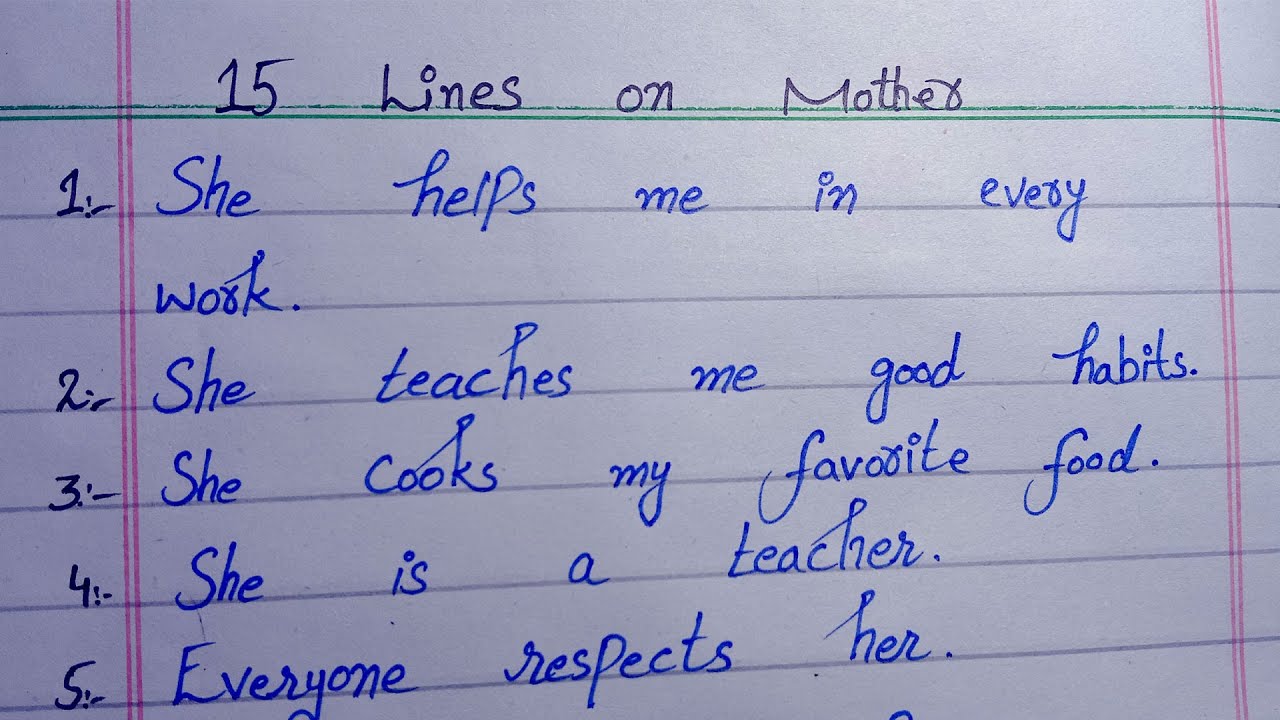 15 Lines on Mother
1:- She helps me in every
work.
2:- She teaches me good habits.
3:- She cooks my favorite food.
4:- She is a teacher.
5:- Everyone respects her.